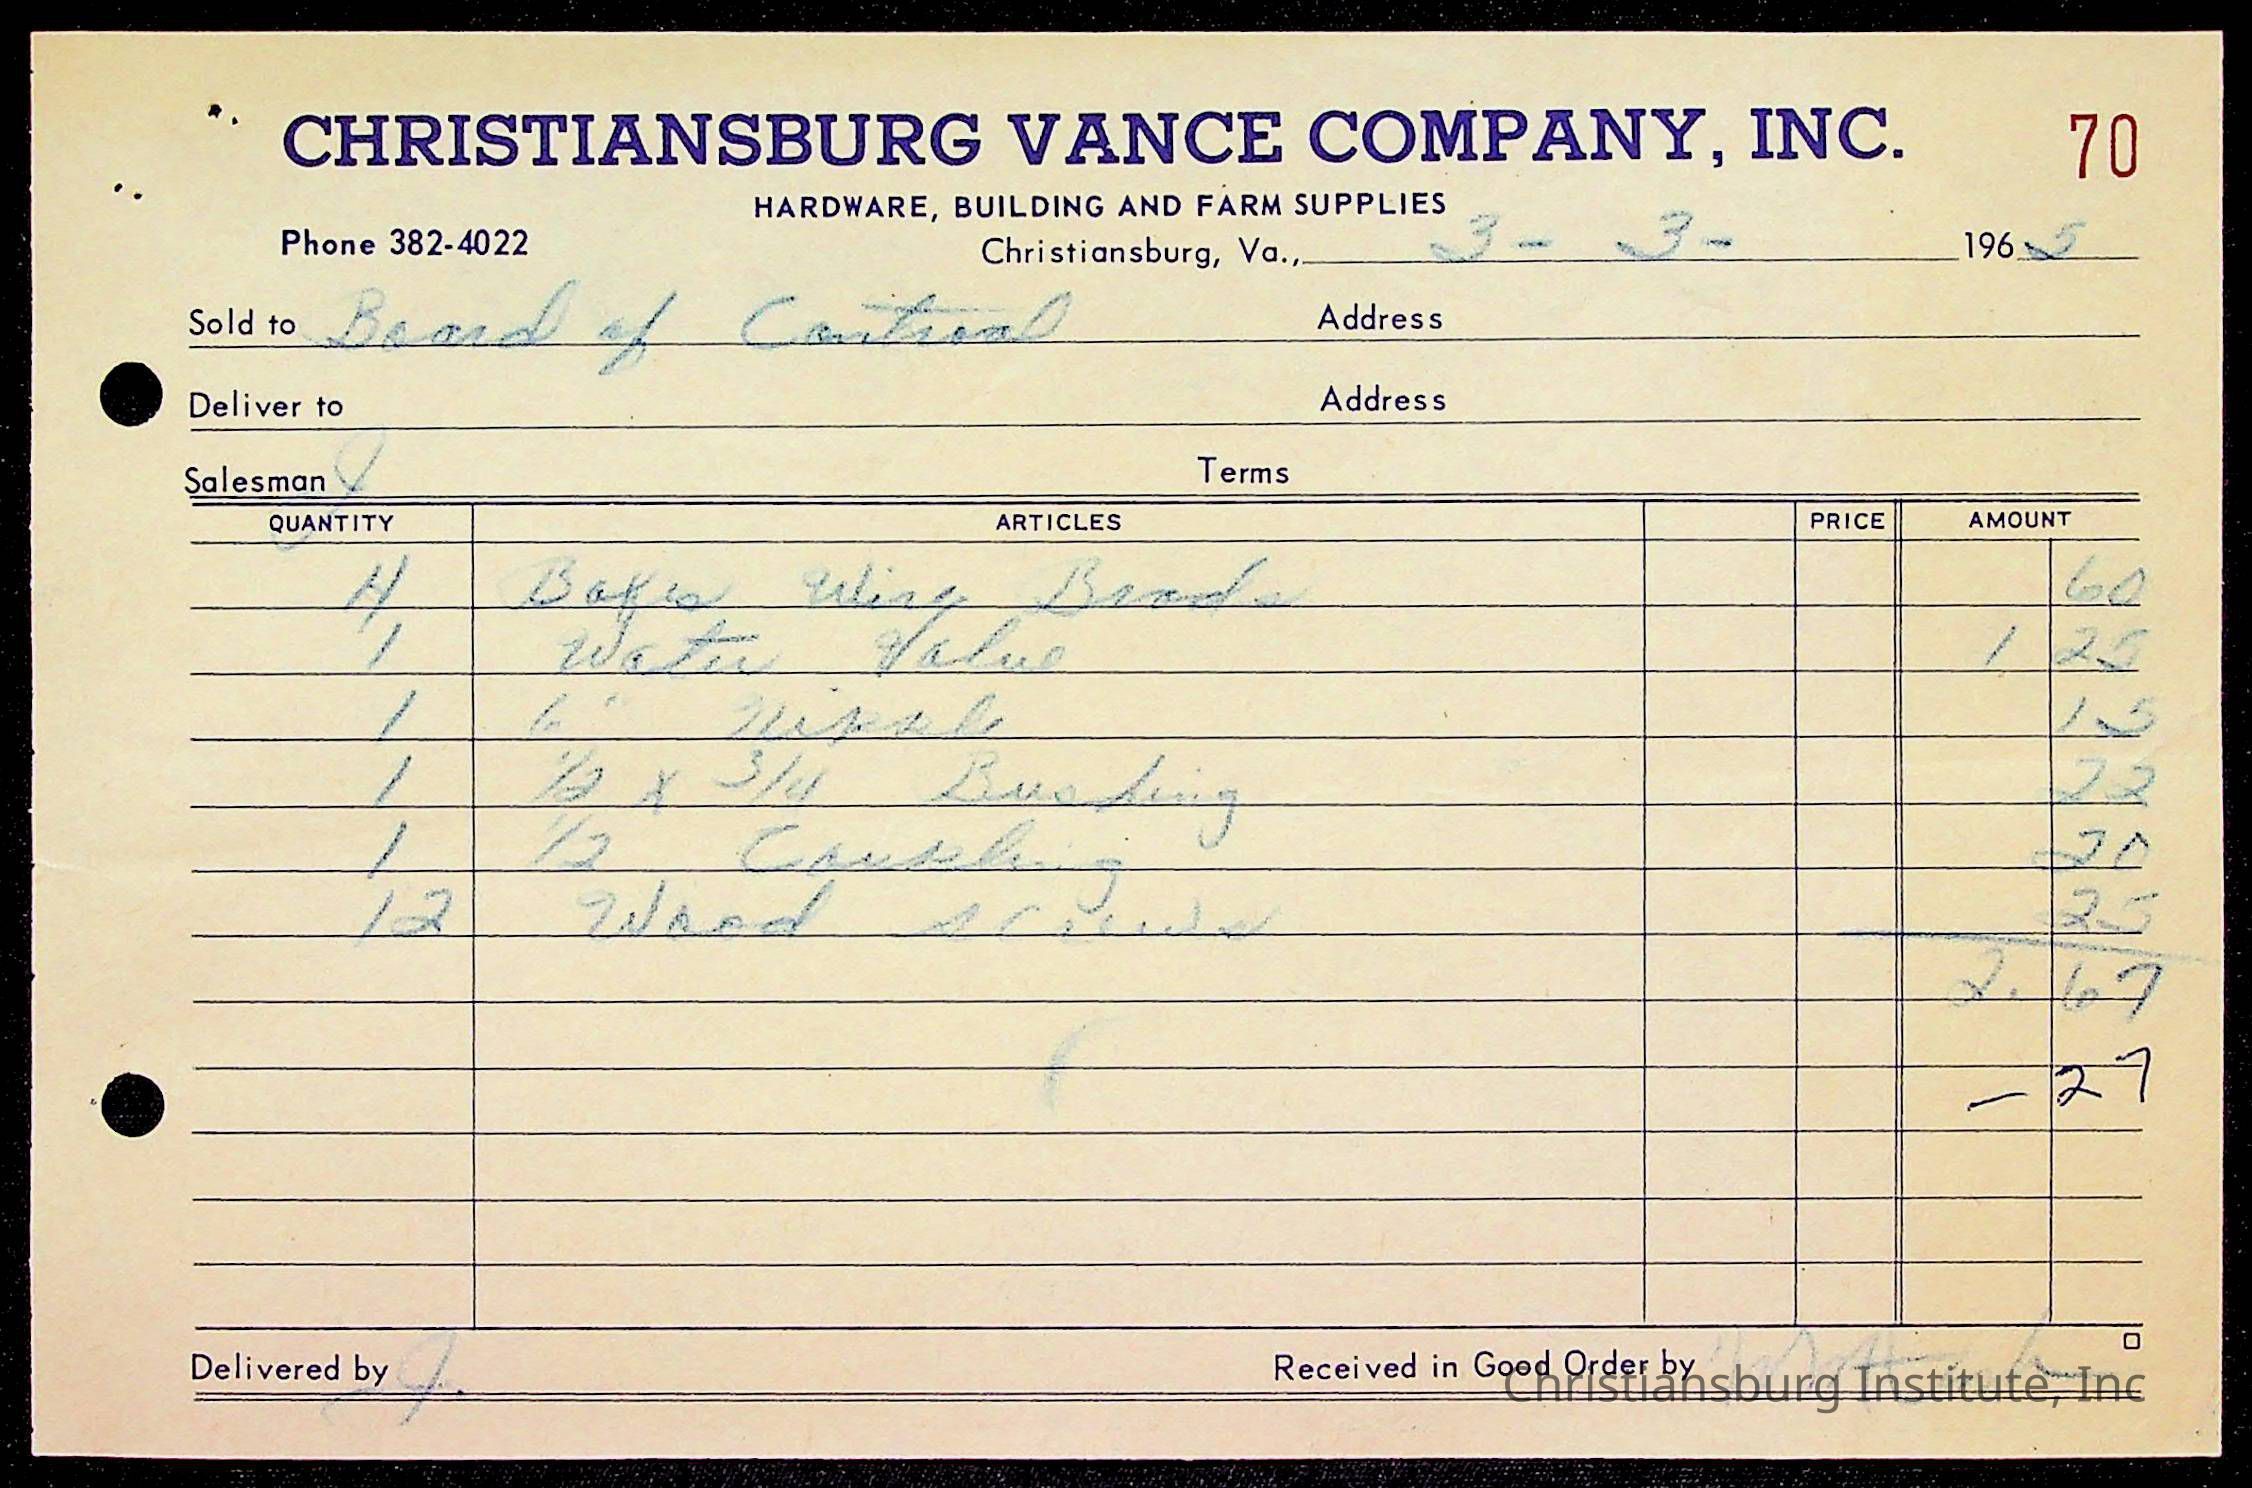 CHRISTIANSBURG VANCE COMPANY, INC. 70
HARDWARE, BUILDING AND FARM SUPPLIES
Phone 382-4022 Christiansburg, Va., 3 - 3 - 1965
Sold to Board of Controol Address
Deliver to Address
Salesman J Terms
QUANTITY ARTICLES PRICE AMOUNT
4 Boxes Wire Brads 60
1 Water Valve 1 25
1 6" Nipple 15
1 1/2 x 3/4 Bushing 22
1 1/2 Coupling 20
12 Wood screws 25
2. 67
- 27
Delivered by J. Received in Good Order by
Christiansburg Institute, Inc